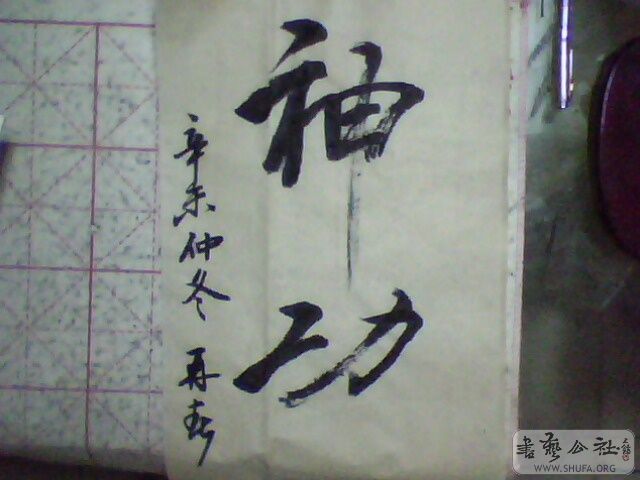 神功
辛未仲冬 再春
書藝公社
WWW.SHUFA.ORG